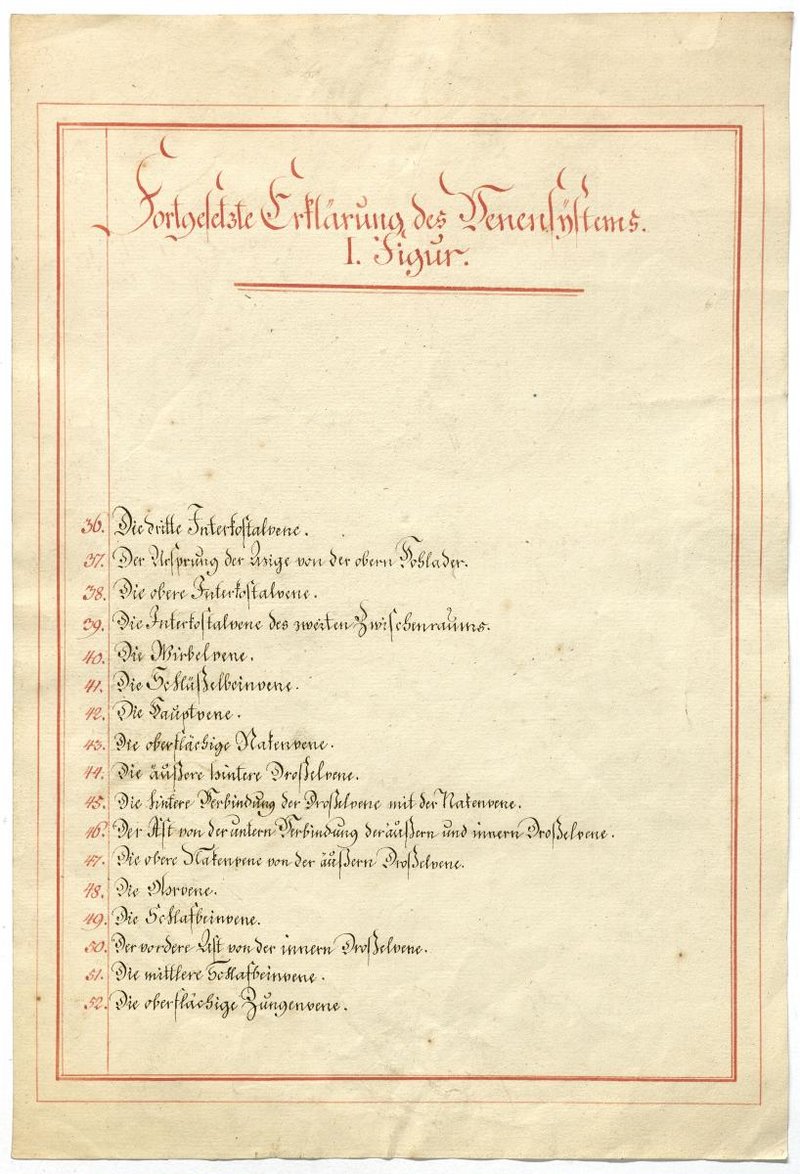 Fortgesetzte Erklärung des Venensÿstems.
I. Figur.
36. Die dritte Interkostalvene.
37. Der Ursprung der Azige von der obern Hohlader.
38. Die obere Interkostalvene.
39. Die Interkostalvene des zweiten Zwischenraums.
40. Die Wirbelvene.
41. Die Schlüßelbeinvene.
42. Die Hauptvene.
43. Die oberflächige Nakenvene.
44. Die äußere hintere Droßelvene.
45. Die hintere Verbindung der Droßelvene mit der Nakenvene.
46. Der Ast von der untern Verbindung der äußern und innern Droßelvene.
47. Die obere Nakenvene von der äußern Droßelvene.
48. Die Ohrvene.
49. Die Schlafbeinvene.
50. Der vordere Ast von der innern Droßelvene.
51. Die mittlere Schlafbeinvene.
52. Die oberflächige Zungenvene.